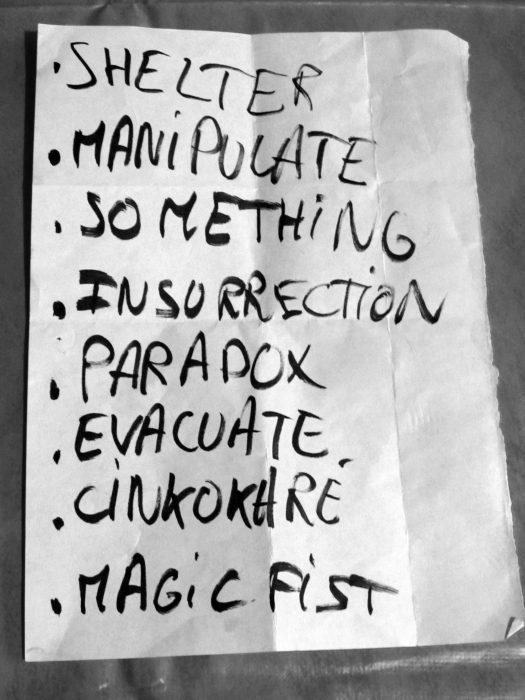 · SHELTER
· MANiPULATE
· SOMETHiNG
· INSURRECTiON
· PARADOX
· EVACUATE
· CiNKOKARÉ
· MAGiC FiST